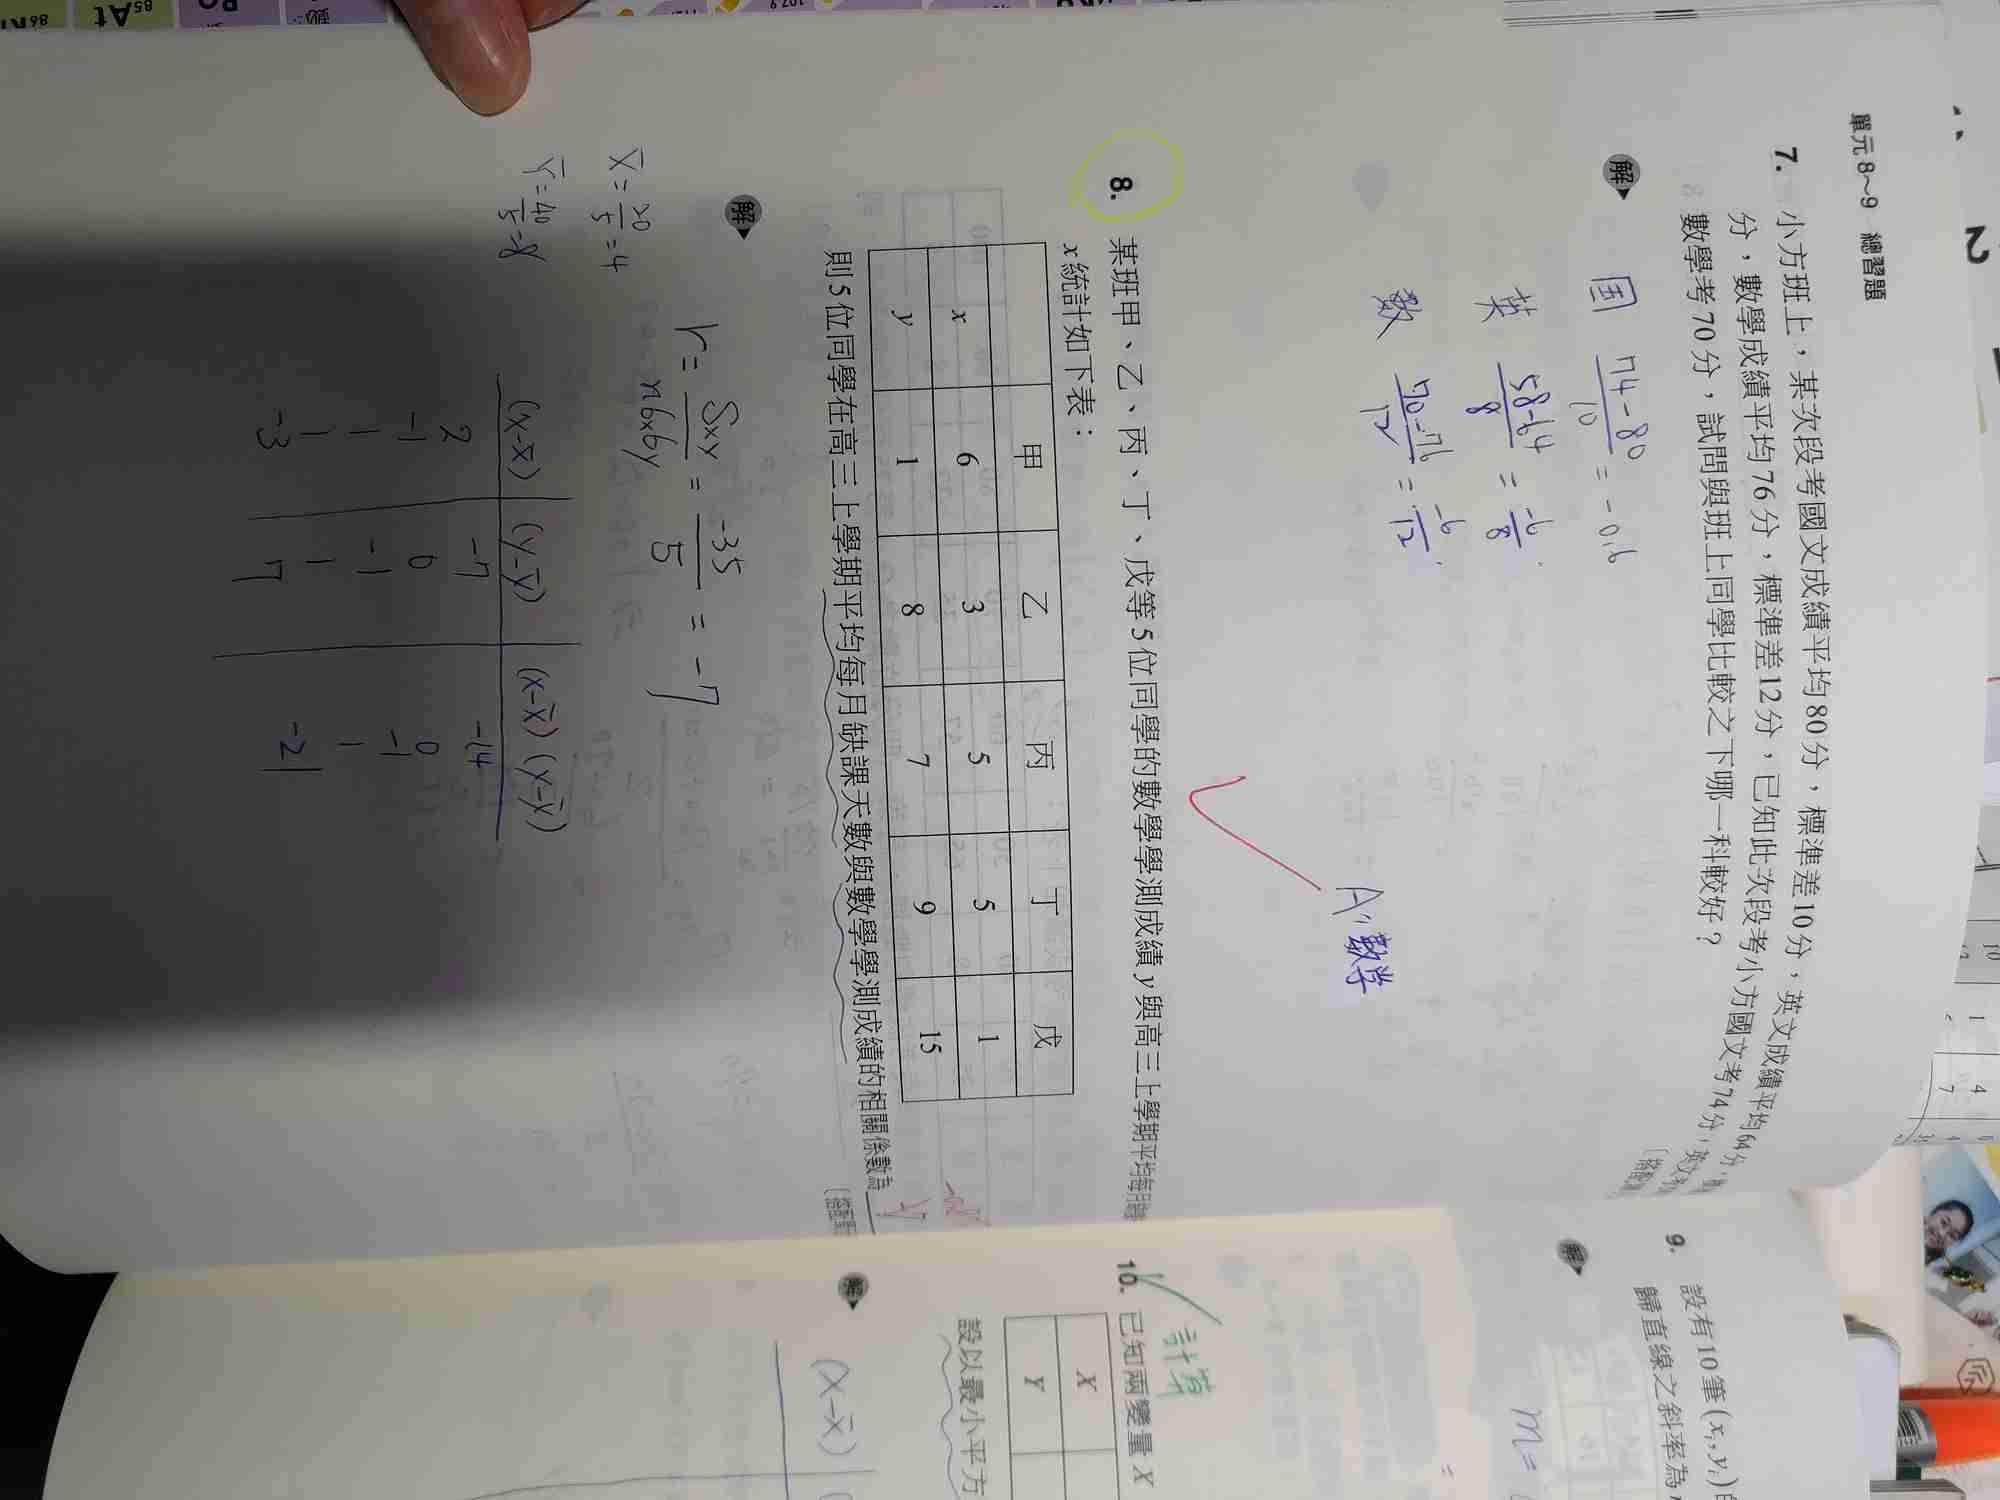 單元8~9 總習題
7. 小方班上，某次段考國文成績平均80分，標準差10分，英文成績平均64分，
分，數學成績平均76分，標準差12分，已知此次段考小方國文考74分，英文考
數學考70分，試問與班上同學比較之下哪一科較好？
解
国 74-80/10 = -0.6
英 58-64/8 = -6/8
数 70-76/12 = -6/12
A: 數学
8. 某班甲、乙、丙、丁、戊等5位同學的數學學測成績y與高三上學期平均每月
x統計如下表：
甲 乙 丙 丁 戊
x 6 3 5 5 1
y 1 8 7 9 15
則5位同學在高三上學期平均每月缺課天數與數學學測成績的相關係數為
解
r = Sxy/nσxσy = -35/5 = -7
x̄ = 20/5 = 4
ȳ = 40/5 = 8
(x-x̄) (y-ȳ) (x-x̄)(y-ȳ)
2 -7 -14
-1 0 0
1 -1 -1
1 1 1
-3 7 -21
9. 設有10筆(xᵢ, yᵢ)
歸直線之斜率為
解
m=
10. 已知兩變量X
計算
X
Y
設以最小平方
解
(x-x̄)